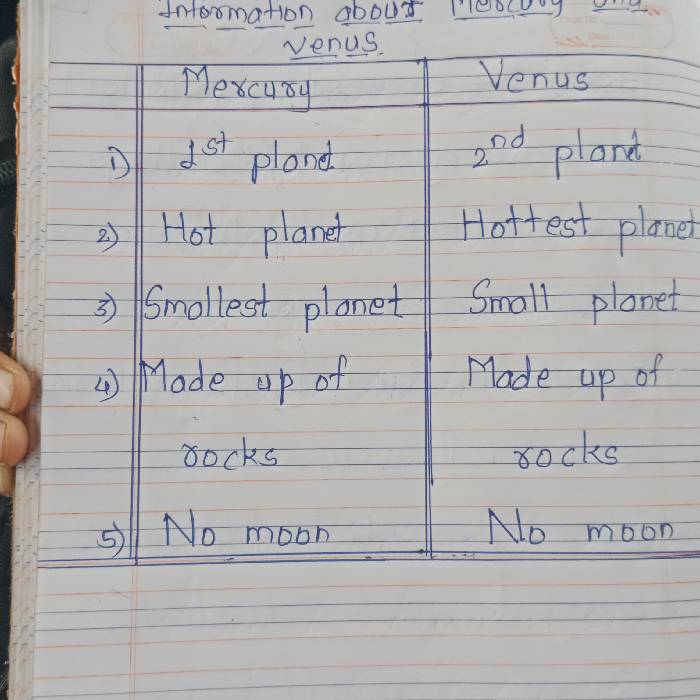 Information about Mercury and
Venus.
Mercury Venus
1) 1st planet 2nd planet
2) Hot planet Hottest planet
3) Smallest planet Small planet
4) Made up of Made up of
rocks rocks
5) No moon No moon